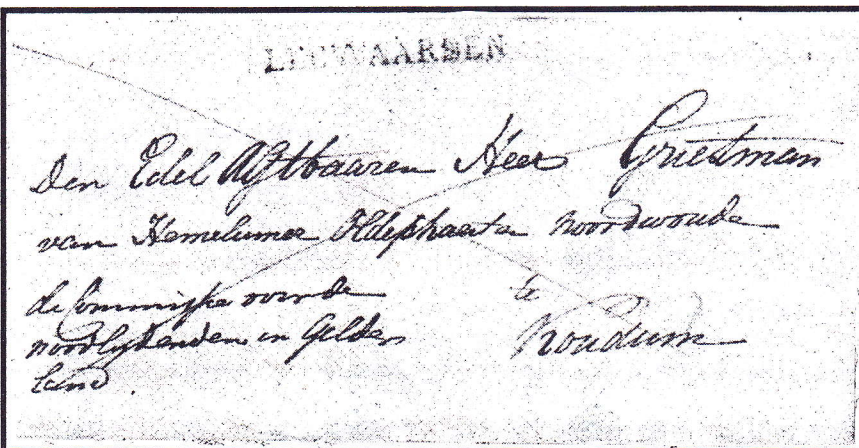 LEEUWAARDEN
Den Edel Agtbaaren Heer Grietman
van Hemelumer Oldephaerta Noordwoude
de Commissie voor de te
noodlydenden in Gelder Koudum
land